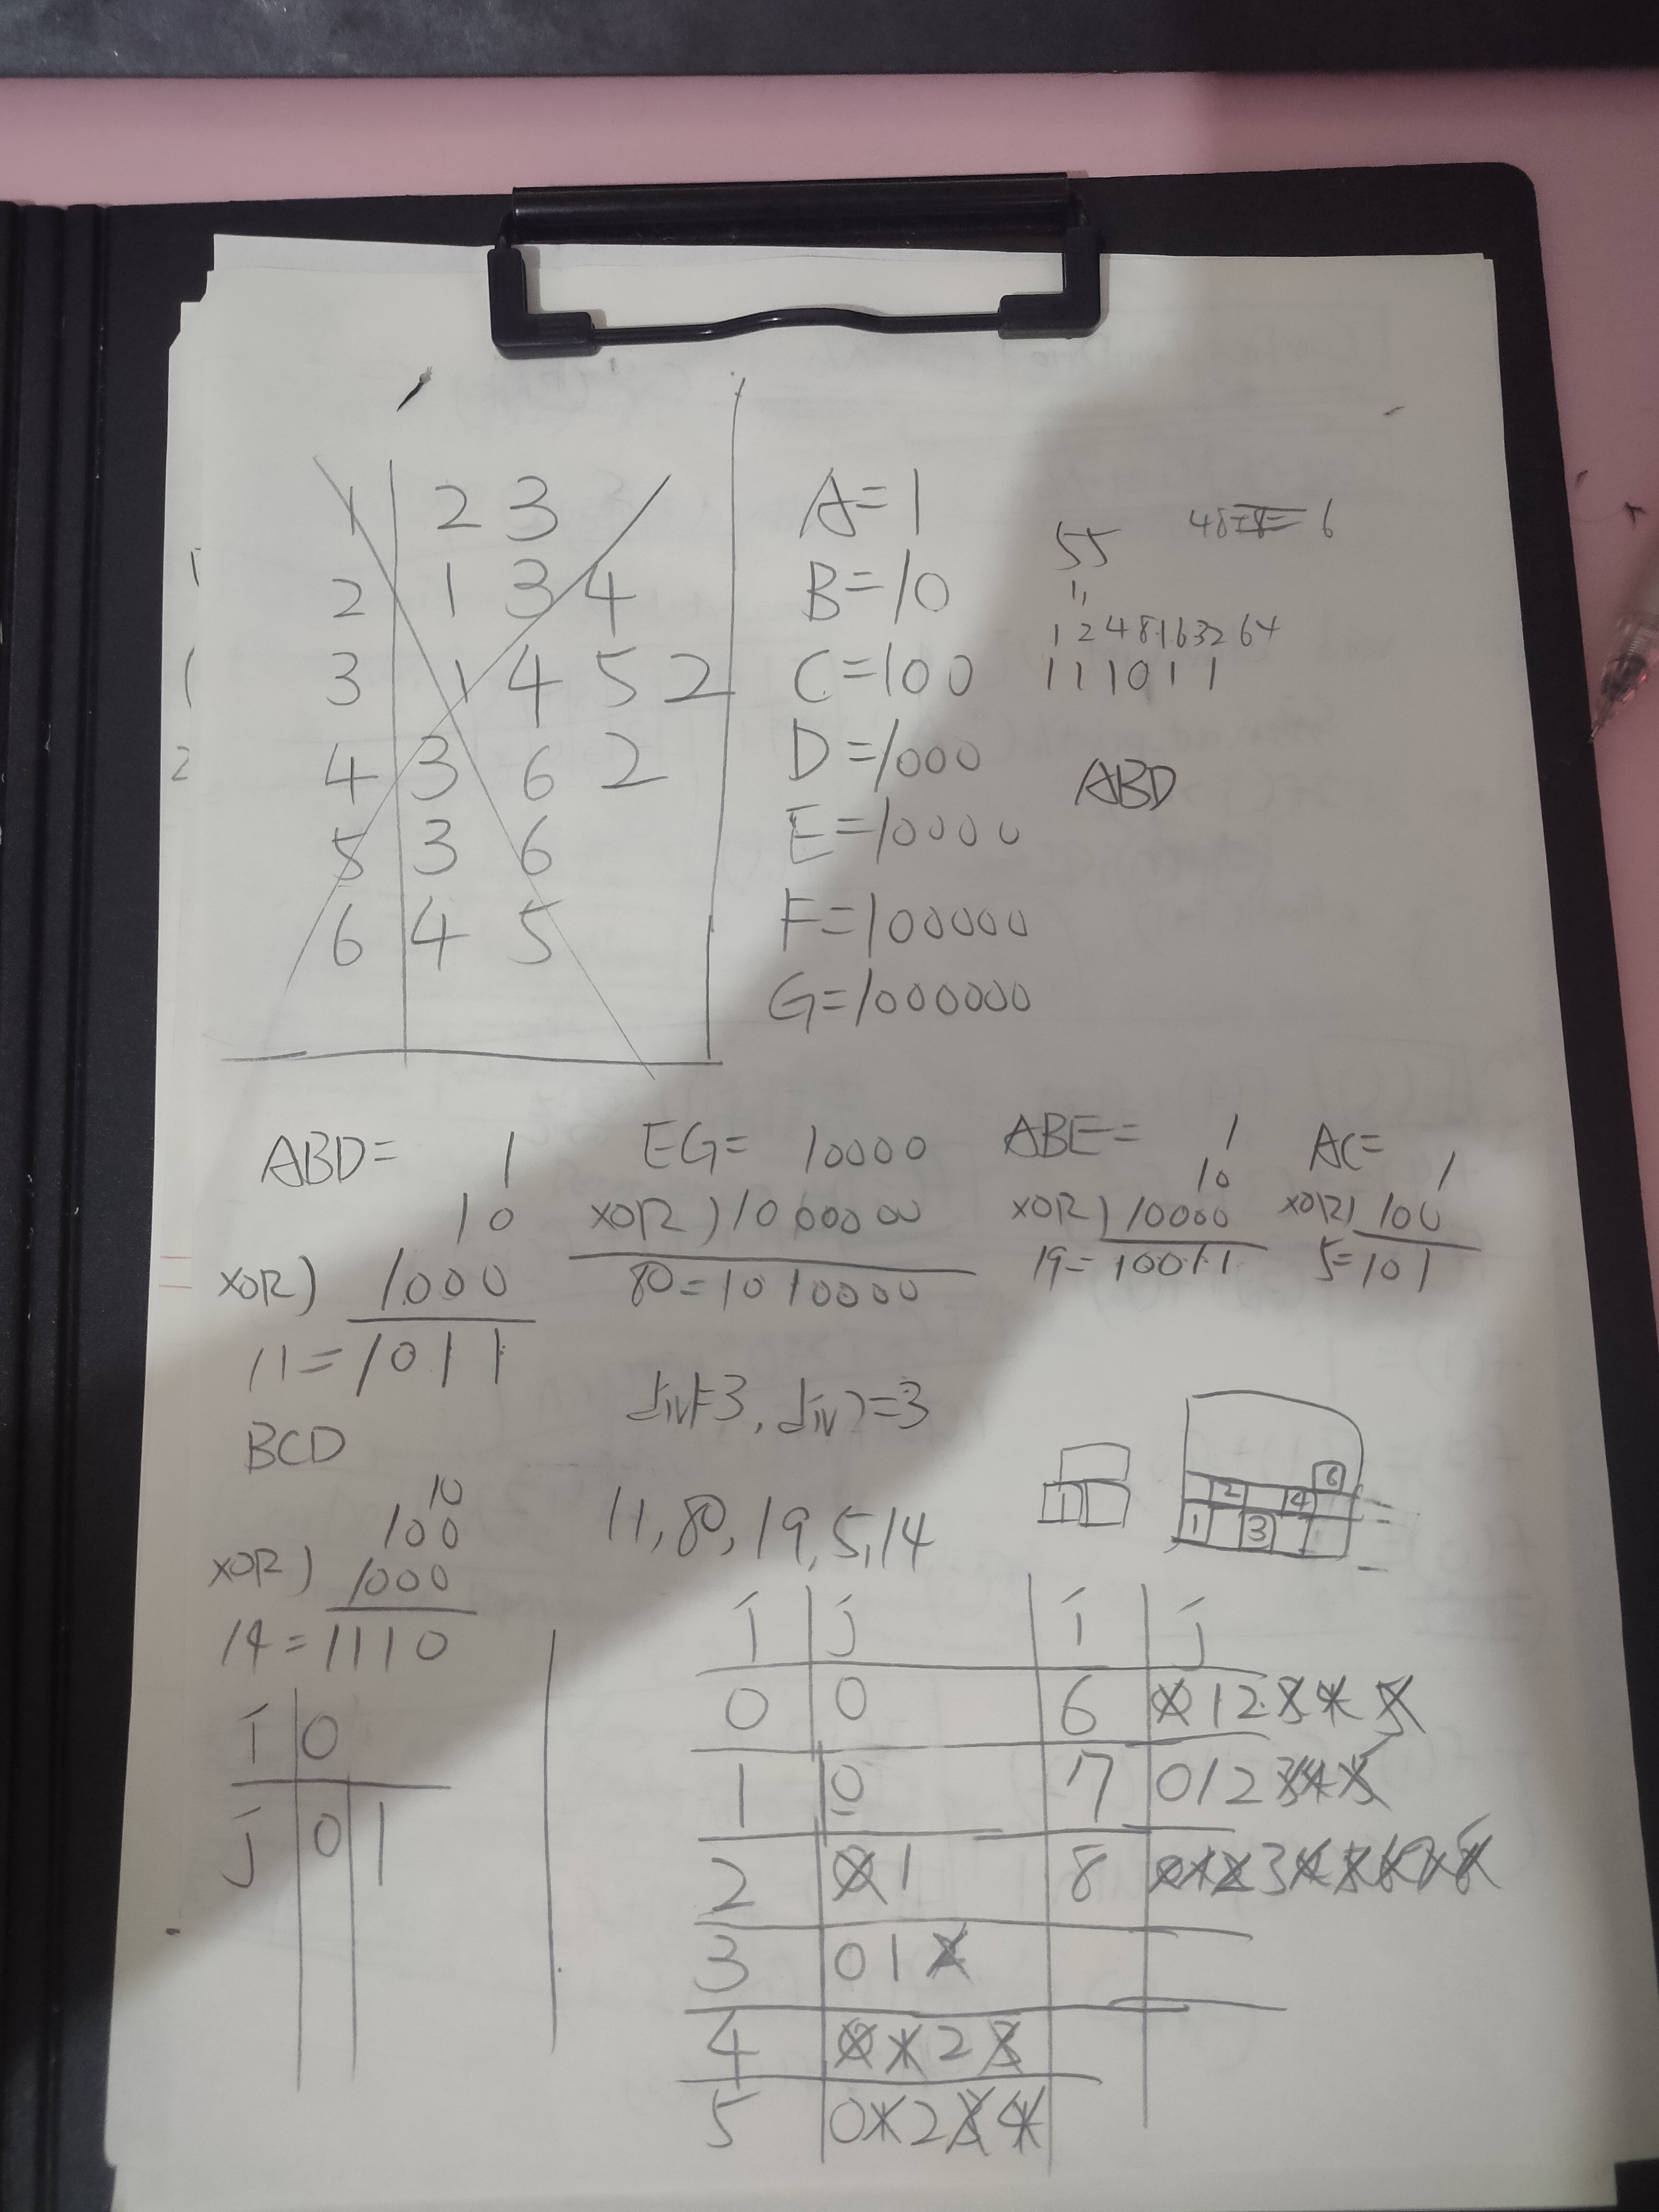 1 2 3
2 1 3 4
3 1 4 5 2
4 3 6 2
5 3 6
6 4 5
1
1
2
A=1
B=10
C=100
D=1000
E=10000
F=100000
G=1000000
55
6
1 2 4 8 16 32 64
1 1 1 0 1 1
ABD
ABD= 1
10
XOR) 1000
11=1011
EG= 10000
XOR) 1000000
80=1010000
ABE= 1
10
XOR) 10000
19=10011
AC= 1
XOR) 100
5=101
div1=3, div2=3
BCD
10
100
XOR) 1000
14=1110
11, 80, 19, 5, 14
1
2 4 6
1 3
i 0
j 0 1
i j i j
0 0 6 0 1 2 3 4 5
1 0 7 0 1 2 3 4 5
2 0 1 8 0 1 2 3 4 5 6 7 8
3 0 1 2
4 0 1 2 3
5 0 1 2 3 4